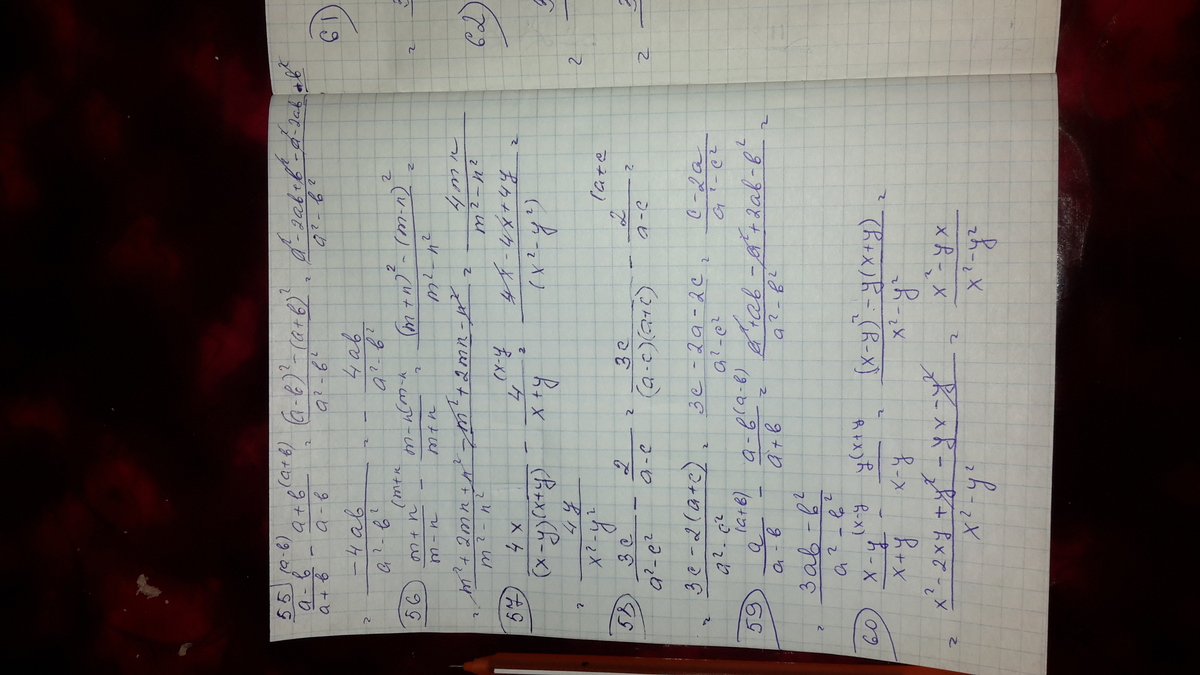 55 (a-b)/(a+b) (a-b) - (a+b)/(a-b) (a+b) = ((a-b)² - (a+b)²)/(a²-b²) = (a²-2ab+b²-a²-2ab+b²)/(a²-b²)
= (-4ab)/(a²-b²) = - 4ab/(a²-b²)
56 (m+n)/(m-n) (m+n - (m-n)/(m+n) (m-n = ((m+n)² - (m-n)²)/(m²-n²) =
= (m²+2mn+n²-m²+2mn-n²)/(m²-n²) = 4mn/(m²-n²)
57 4x/((x-y)(x+y)) - 4/(x+y) (x-y = (4x-4x+4y)/(x²-y²) =
= 4y/(x²-y²)
58 3c/(a²-c²) - 2/(a-c) = 3c/((a-c)(a+c)) - 2/(a-c) (a+c =
= (3c-2(a+c))/(a²-c²) = (3c-2a-2c)/(a²-c²) = (c-2a)/(a²-c²)
59 a/(a-b) (a+b) - (a-b)/(a+b) (a-b) = (a²+ab-a²+2ab-b²)/(a²-b²) =
= (3ab-b²)/(a²-b²)
60 (x-y)/(x+y) (x-y - y/(x-y) (x+y = ((x-y)²-y(x+y))/(x²-y²) =
= (x²-2xy+y²-yx-y²)/(x²-y²) = (x²-yx)/(x²-y²)
61)
=
62)
=
=